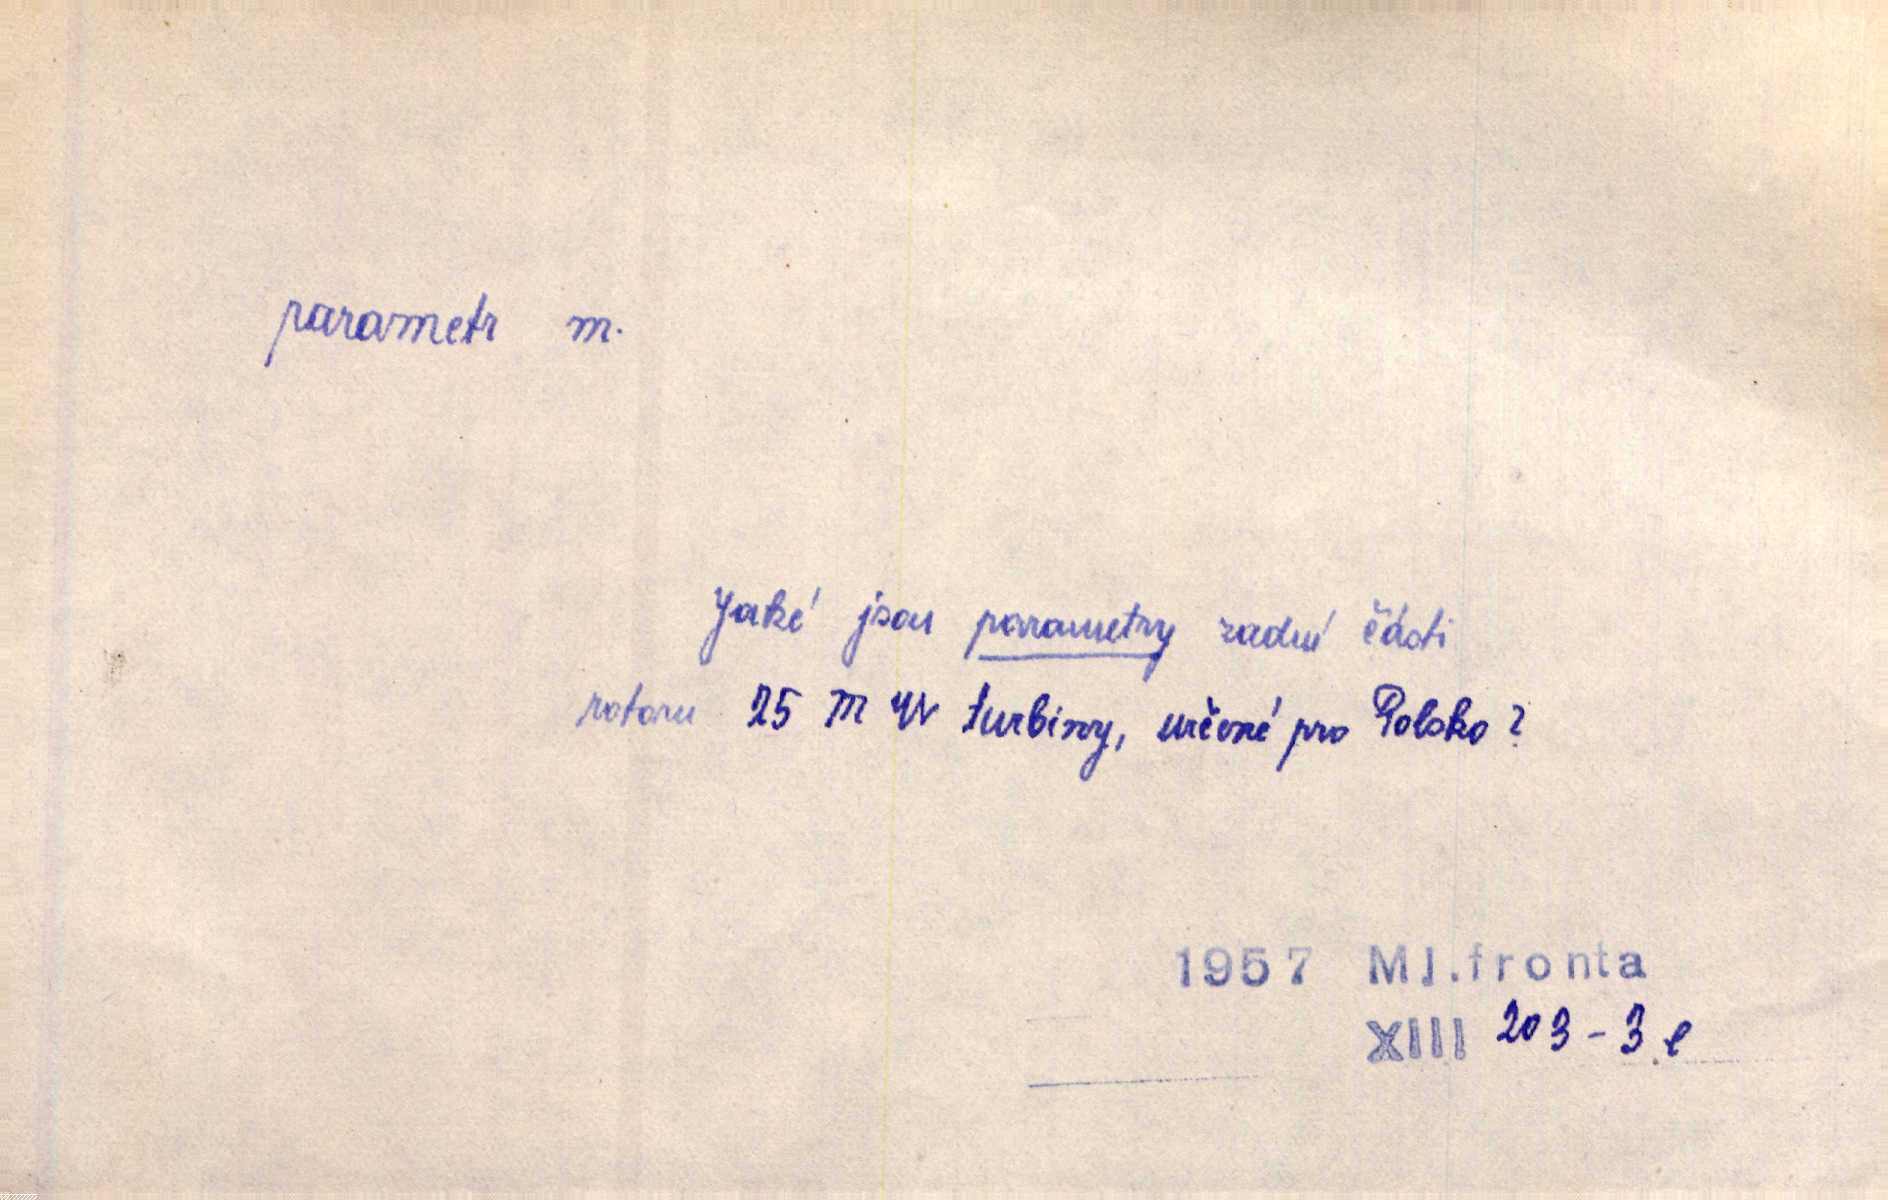 parametr m.
Jaké jsou parametry zadní části
rotoru 25 MW turbiny, určené pro Polsko?
1957 Ml.fronta
XIII 203-3 e